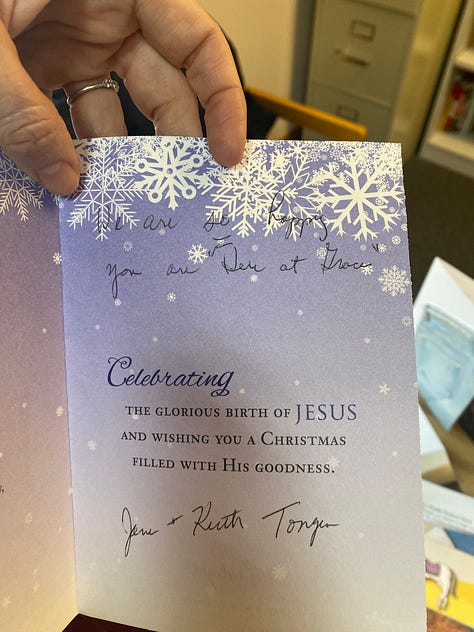 We are so Happy
you are "Here at Grace"
Celebrating
THE GLORIOUS BIRTH OF JESUS
AND WISHING YOU A CHRISTMAS
FILLED WITH HIS GOODNESS.
+ Ruth Tongen